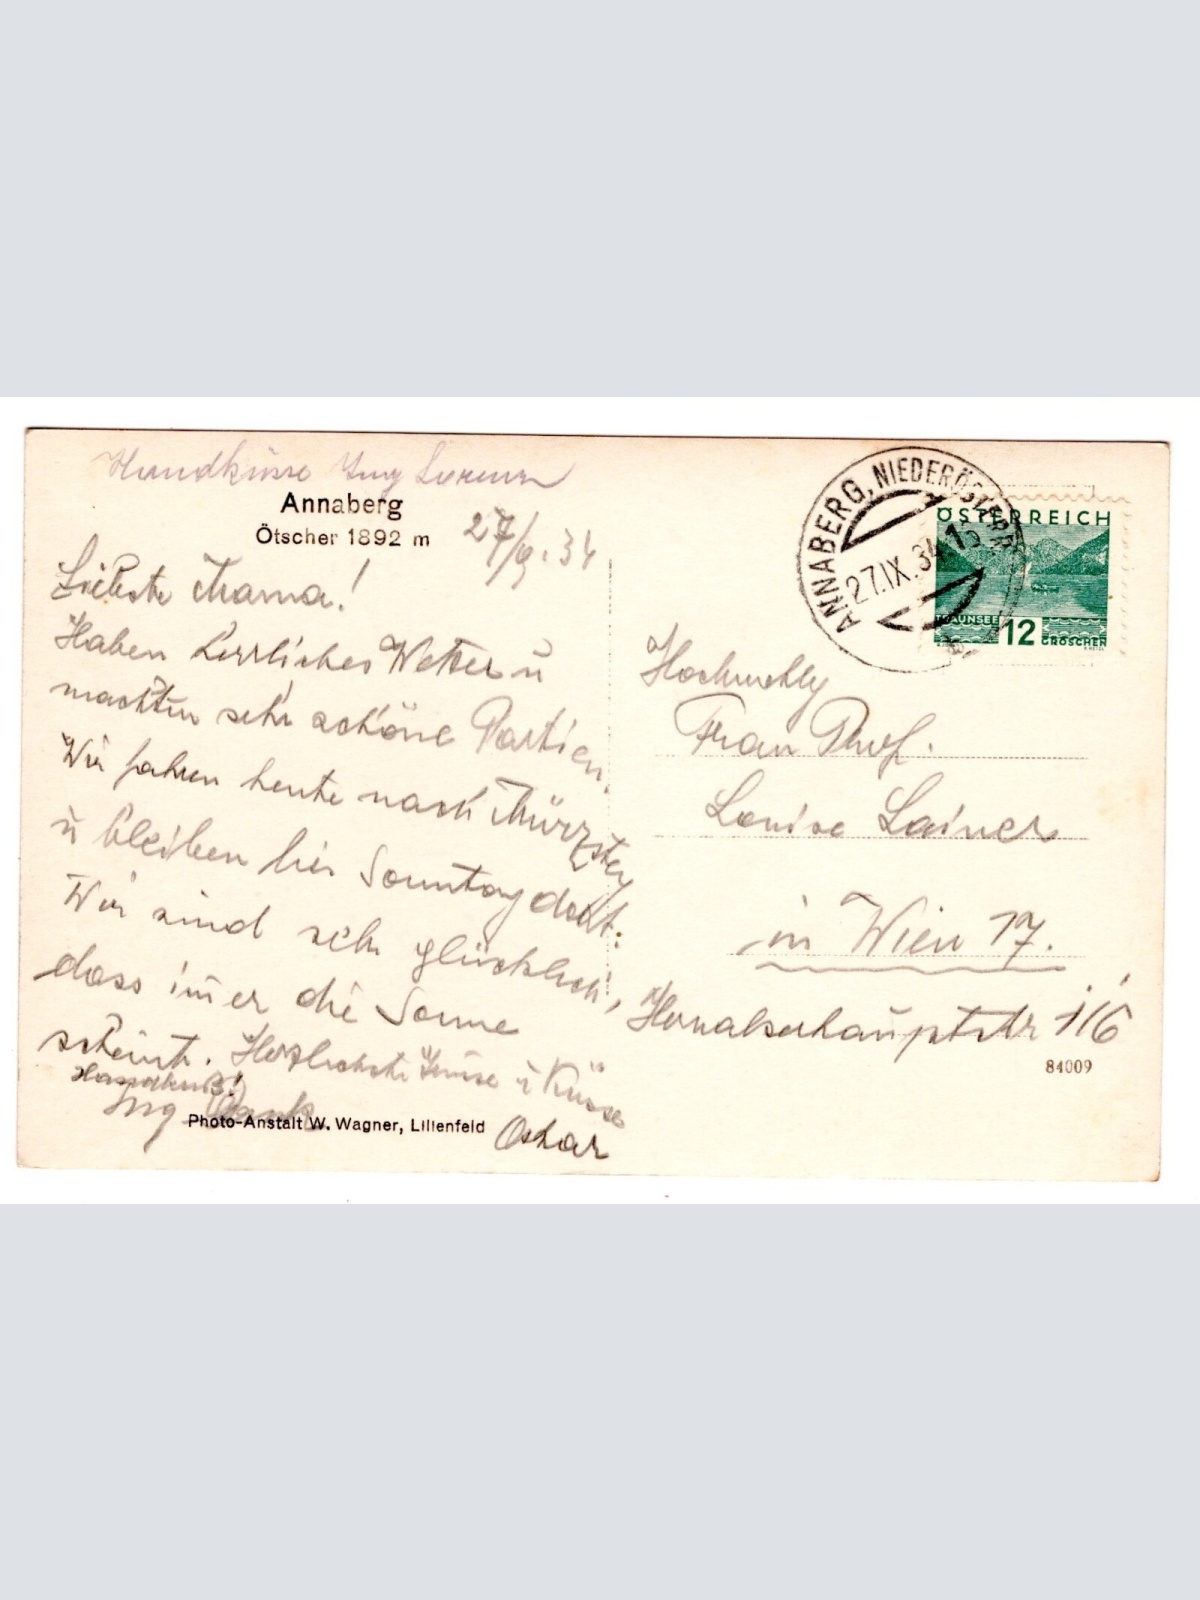 Handküsse Ing Lorenz
Annaberg
Ötscher 1892 m
27/9.34
Liebste Mama!
Haben herrliches Wetter u
machten sehr schöne Partien.
Wir fahren heute nach Mürzsteg
u bleiben bis Sonntag dort.
Wir sind sehr glücklich,
dass im̄er die Sonne
scheint. Herzlichste Grüsse u Küsse
Oskar
Handkuß!
Ing
Photo-Anstalt W. Wagner, Lilienfeld
ANNABERG, NIEDERÖSTERR
27.IX.34 15
ÖSTERREICH
TRAUNSEE 12 GROSCHEN
Hochwohlg
Frau Prof.
Louise Lainer
in Wien 17.
Hernalserhauptstr 116
84009